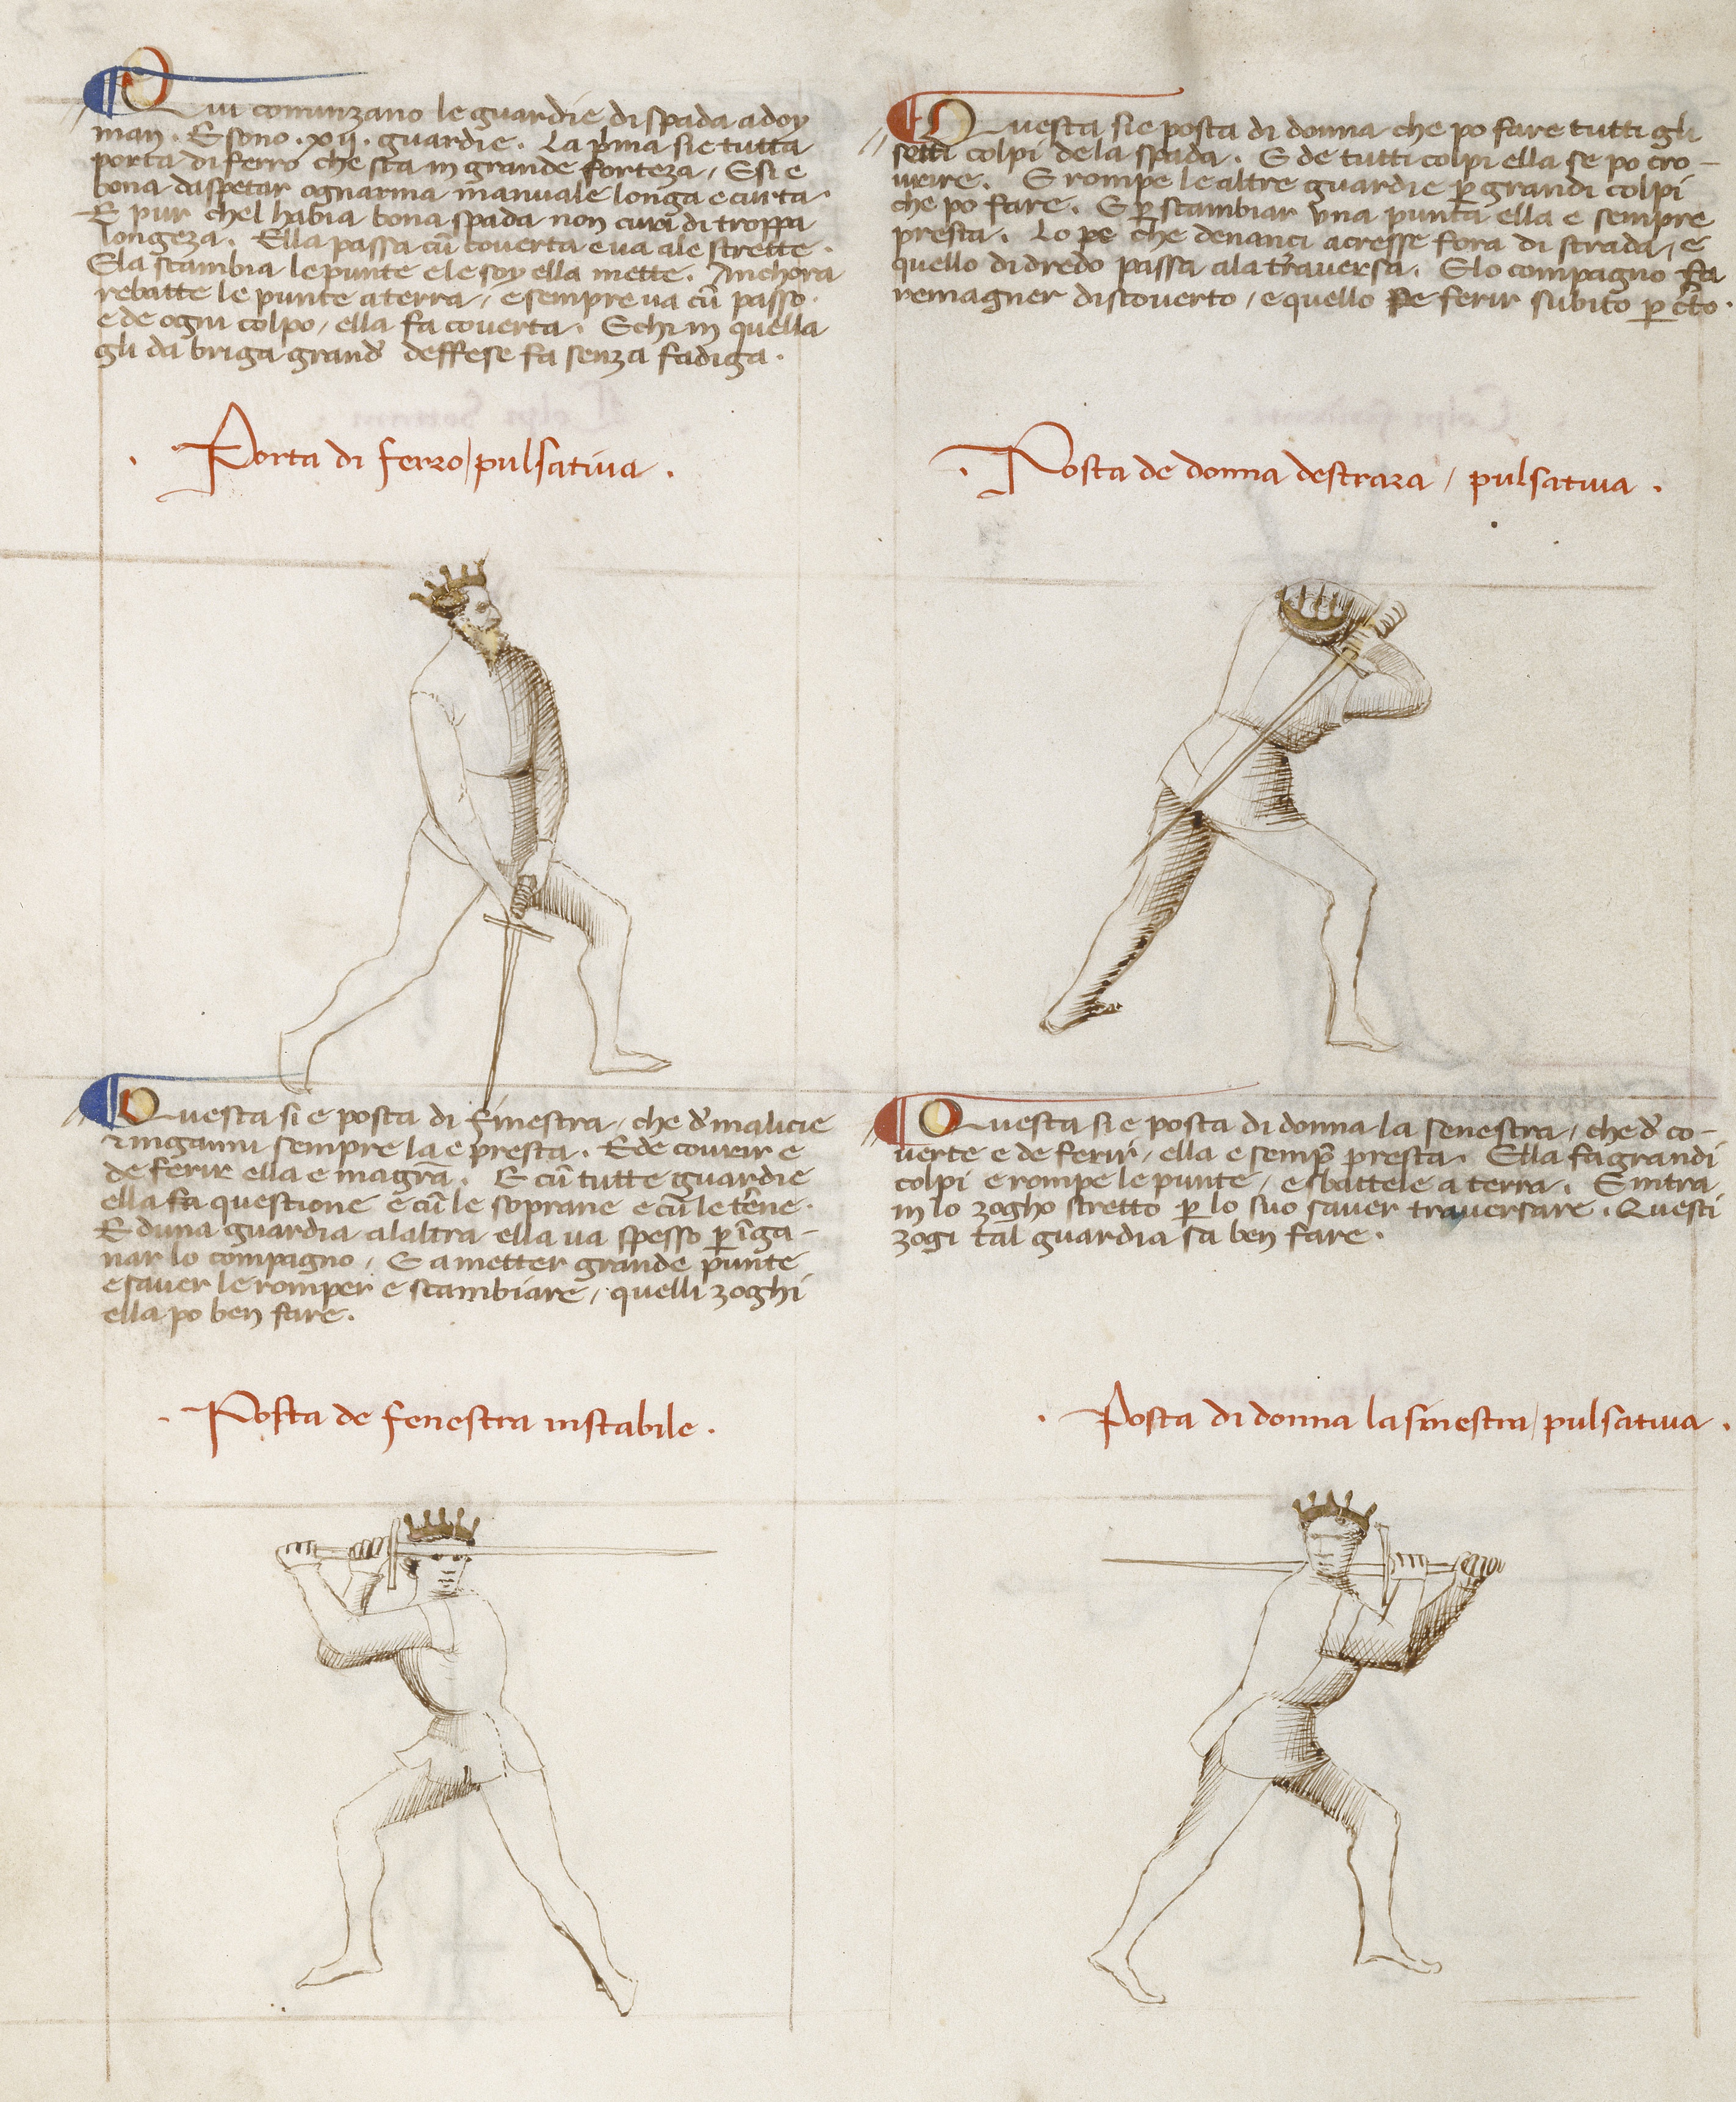 Qui cominzano le guardie di spada a doy
man. E sono .xij. guardie. La p̄ma sie tutta
porta di ferro che sta in grande forteza / E si e
bona daspetar ogn arma manuale longa e curta.
E pur chel habia bona spada non cura di troppa
longeza. Ella passa cū coverta e va ale strette.
Ela scambia le punte e le soy ella mette. Anchora
rebatte le punte a terra / e sempre va cū passo.
e de ogni colpo / ella fa coverta. E chi in quella
gli da briga grand' deffese fa senza fadiga.
. Porta di ferro / pulsativa .
Questa sie posta di donna che po fare tutti gli
setti colpi de la spada. E de tutti colpi ella se po cro-
vrire. E rompe le altre guardie p̱ grandi colpi
che po fare. E p̱ scambiar una punta ella e sempre
presta. Lo pe che denanci acresse fora di strada / e
quello di dredo passa ala traversa. E lo compagno fa
remagner discoverto / e quello pe ferir subito p̱ c̄to.
. Posta de donna destraza / pulsativa .
Questa si e posta di finestra / che d' malicie
e inganni sempre la e presta. E de covrir e
de ferir ella e magr̄a. E cū tutte guardie
ella fa questione e cū le soprane e cū le t'ene.
E d una guardia a laltra ella va spesso p̱ īga-
nar lo compagno / E a metter grande punte
e saver le romper e scambiare / quelli zoghi
ella po ben fare.
. Posta de fenestra instabile .
Questa si e posta di donna la senestra / che d' co-
verte e de ferir / ella e semp̄ presta. Ella fa grandi
colpi e rompe le punte / e sbattele a terra. E intra
in lo zogho stretto p̱ lo suo saver traversare. Questi
zogi tal guardia sa ben fare.
. Posta di donna la sinestra / pulsativa .